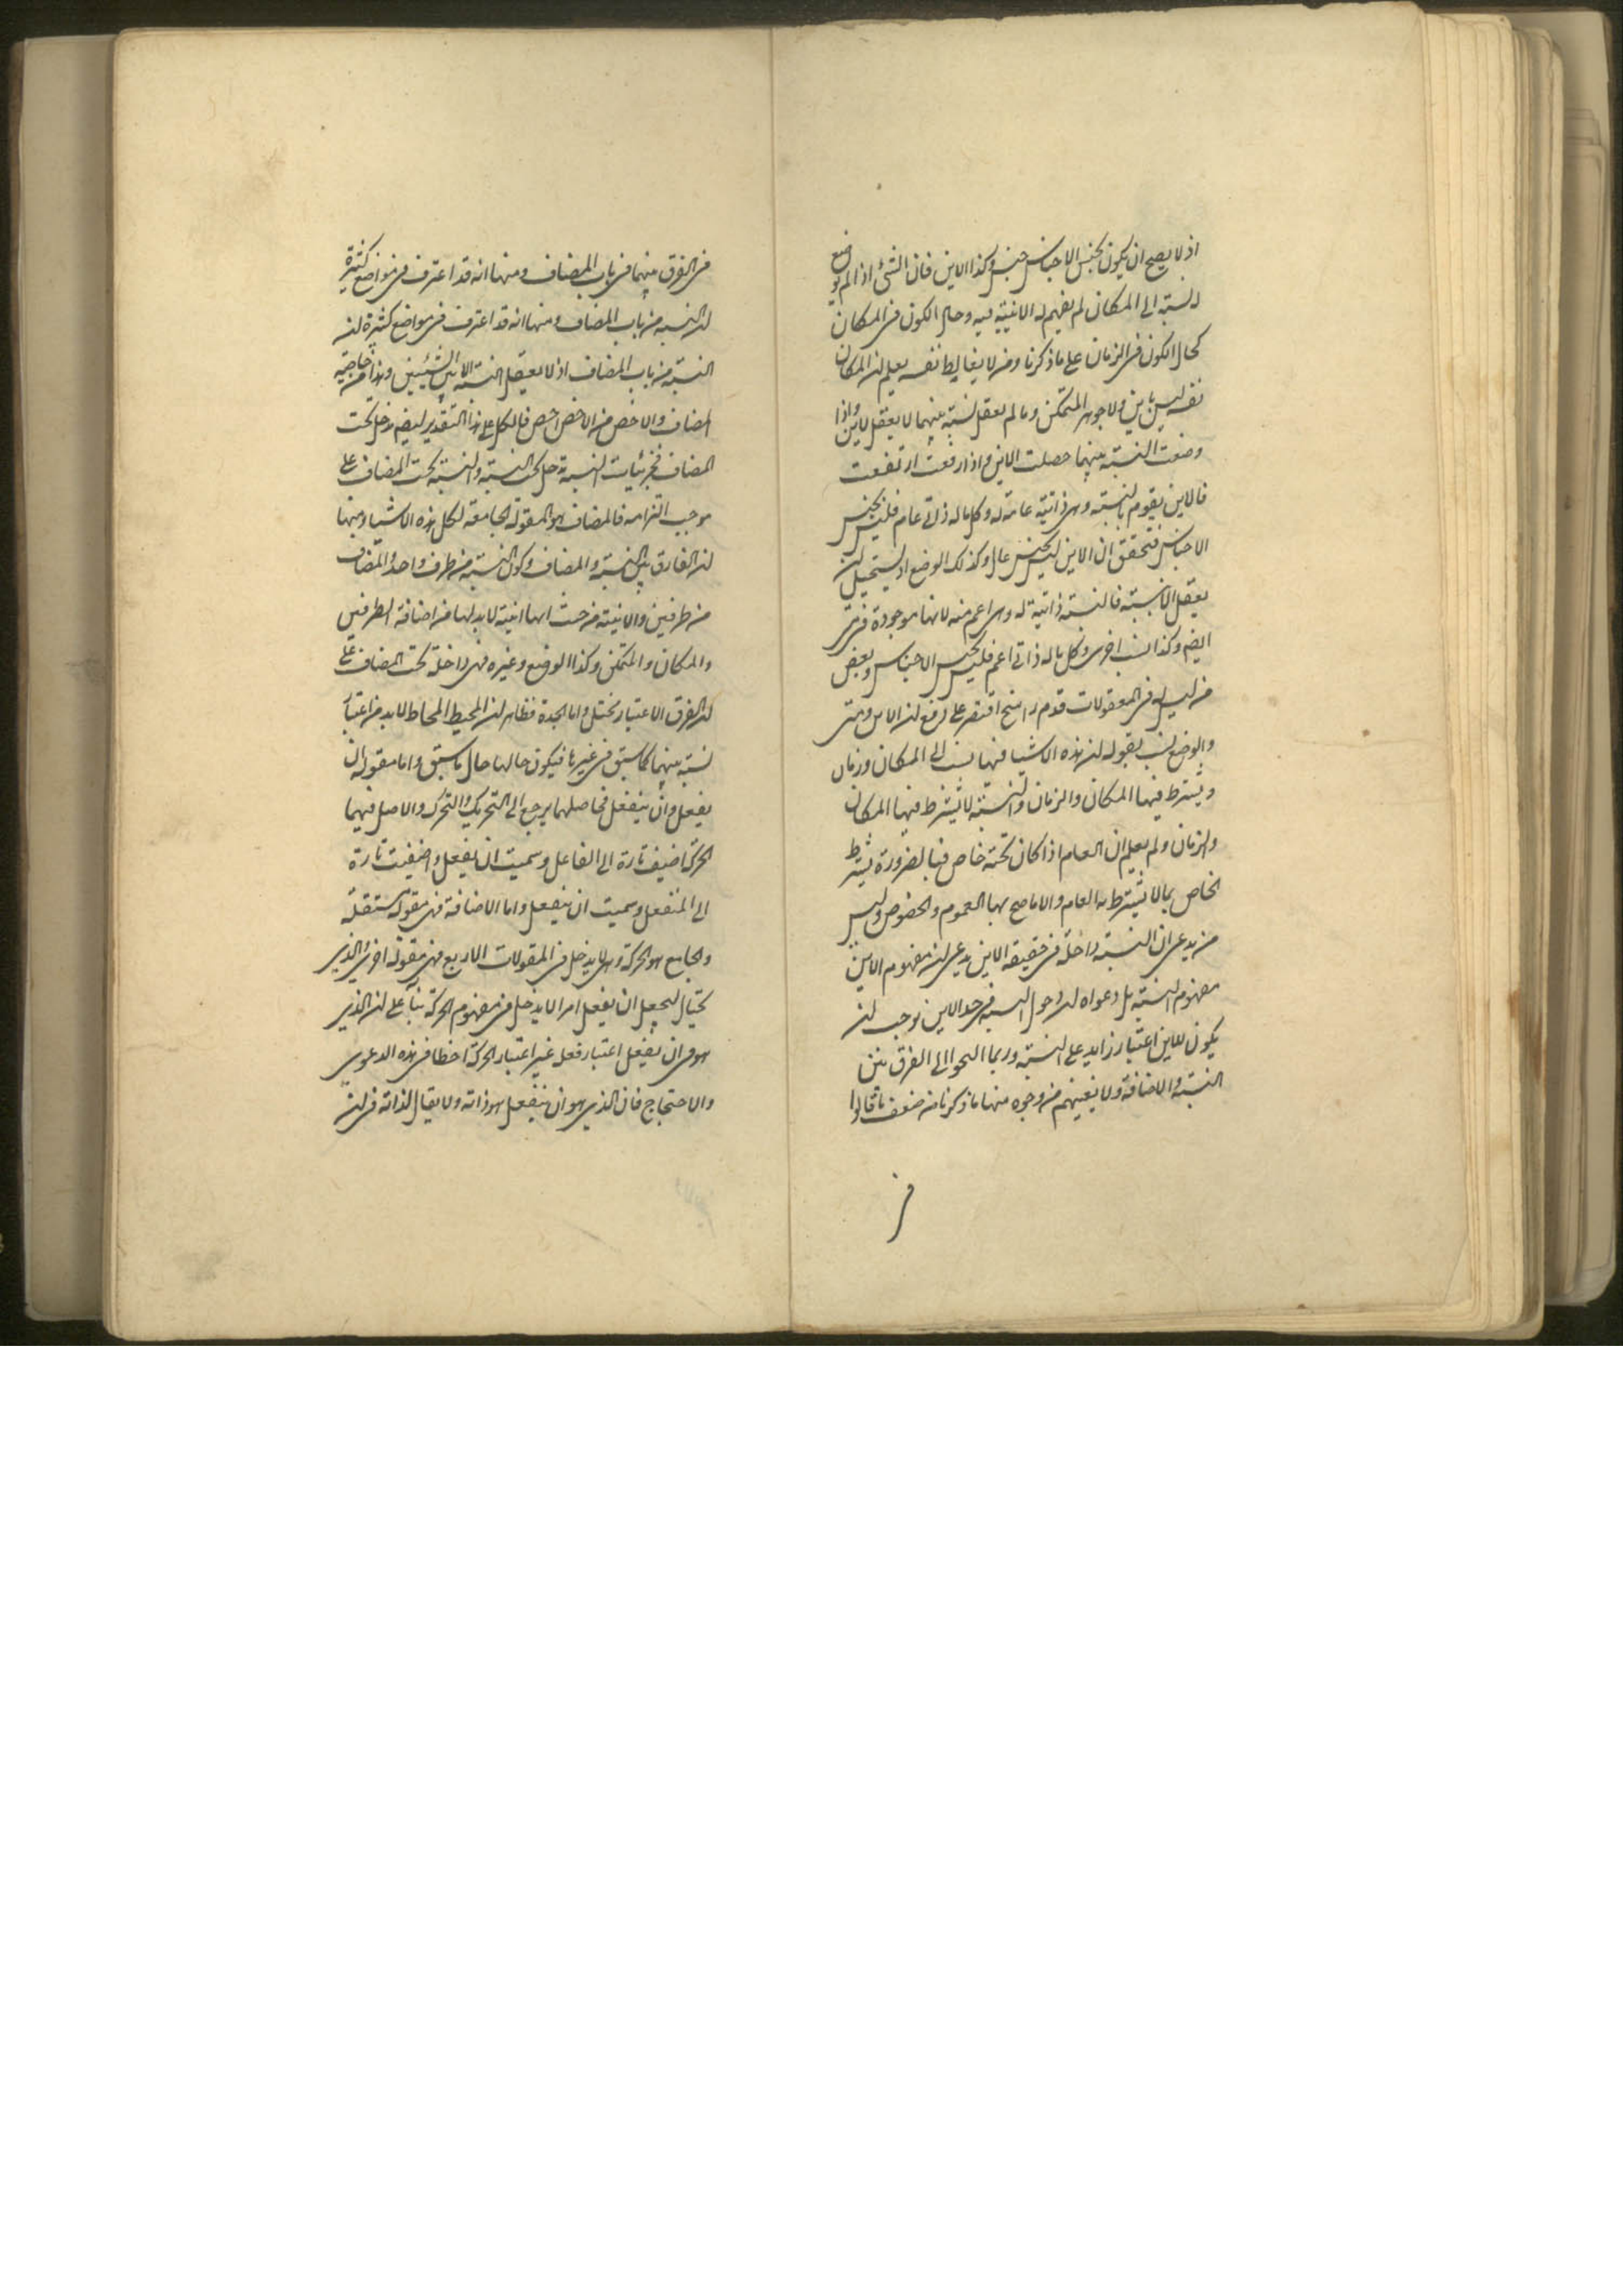 اذ لا يصح ان يكون لجنس الاجناس جنس وكذا الاين فان الشئ اذا لم يوضع
له نسبته الى المكان لم يفهم له الاينية فيه وحال الكون فى المكان
كحال الكون فى الزمان على ما ذكرنا ومن لا يغالط نفسه يعلم ان المكان
نفسه ليس باين ولا جوهر المتمكن وما لم يعقل نسبة بينهما لا يعقل الاين واذا
وضعت النسبة بينهما حصلت الاين واذا رفعت ارتفعت
فالاين يقوم بالنسبة وهى ذاتية عامة له وكل ما له ذاتى عام فليس بجنس
الاجناس فتحقق ان الاين ليس بجنس عال وكذلك الوضع اذ يستحيل ان
يعقل الا بنسبة فالنسبة ذاتية له وهى اعم منه لانها موجودة فى متى
ايضم وكذا نسب اخرى وكل ما له ذاتى اعم فليس بجنس الاجناس وبعض
من ليس له فى المعقولات قدم راسخ اقتصر على رفع ان الاين ومتى
والوضع نسب بقوله ان هذه الاشيا فيها نسب الى المكان وزمان
ويشترط فيها المكان والزمان والنسبة لا يشترط فيها المكان
والزمان ولم يعلم ان العام اذا كان تحته خاص فبالضرورة يشترط
الخاص بما لا يشترط به العام والا ما صح بها العموم والخصوص وليس
من يدعى ان النسبة داخلة فى حقيقة الاين يدعى ان مفهوم الاين
مفهوم النسبة بل دعواه ان دخول النسبة فى حد الاين توجب ان
يكون للاين اعتبار زايد على النسبة وربما التجوا الى الفرق بين
النسبة والاضافة ولا يغنيهم من وجوه منها ما ذكرنا من ضعف ما قالوا
فى
فى الفرق بينهما فى باب المضاف ومنها انه قد اعترف فى مواضع كثيرة
ان النسبة من باب المضاف ومنها انه قد اعترف فى مواضع كثيرة ان
النسبة من باب المضاف اذ لا يعقل النسبة الا بين الشيئين وهذا من خاصية
المضاف والاخص من الاخص اخص فالكل على هذا التقدير ايضم يدخل تحت
المضاف فجزئيات النسبة تدخل تحت النسبة والنسبة تحت المضاف على
موجب التزامه فالمضاف هو المقولة الجامعة لكل هذه الاشيا ومنها
ان الفارق بين النسبة والمضاف وكون النسبة من طرف واحد والمضاف
من طرفين والاينية من حيث انها اينية لا بد لها من اضافة الطرفين
والمكان والمتمكن وكذا الوضع وغيره فهى داخلة تحت المضاف على
ان الفرق الاعتبار يختل واما الجدة فظاهر ان المحيط المحاط لا بد من اعتبار
نسبة بينهما كما سبق فى غيرها فيكون حالها حال ما سبق واما مقولة ان
يفعل وان ينفعل فحاصلهما يرجع الى التحريك والتحرك والاصل فيهما
الحركة اضيف تارة الى الفاعل وسميت ان يفعل واضيفت تارة
الى المنفعل وسميت ان ينفعل واما الاضافة فهى مقولة مستقلة
والجامع هو الحركة وهى لا يدخل فى المقولات الاربع فهى مقولة اخرى والذى
يحتال ليجعل ان يفعل امرا لا يدخل فى مفهوم الحركة بناء على ان الذى
هو فى ان يفعل اعتبار فعل غير اعتبار الحركة اخطا فى هذه الدعوى
والاحتجاج فان الذى هو ان ينفعل هو ذاته ولا يقال لذاته فى ان